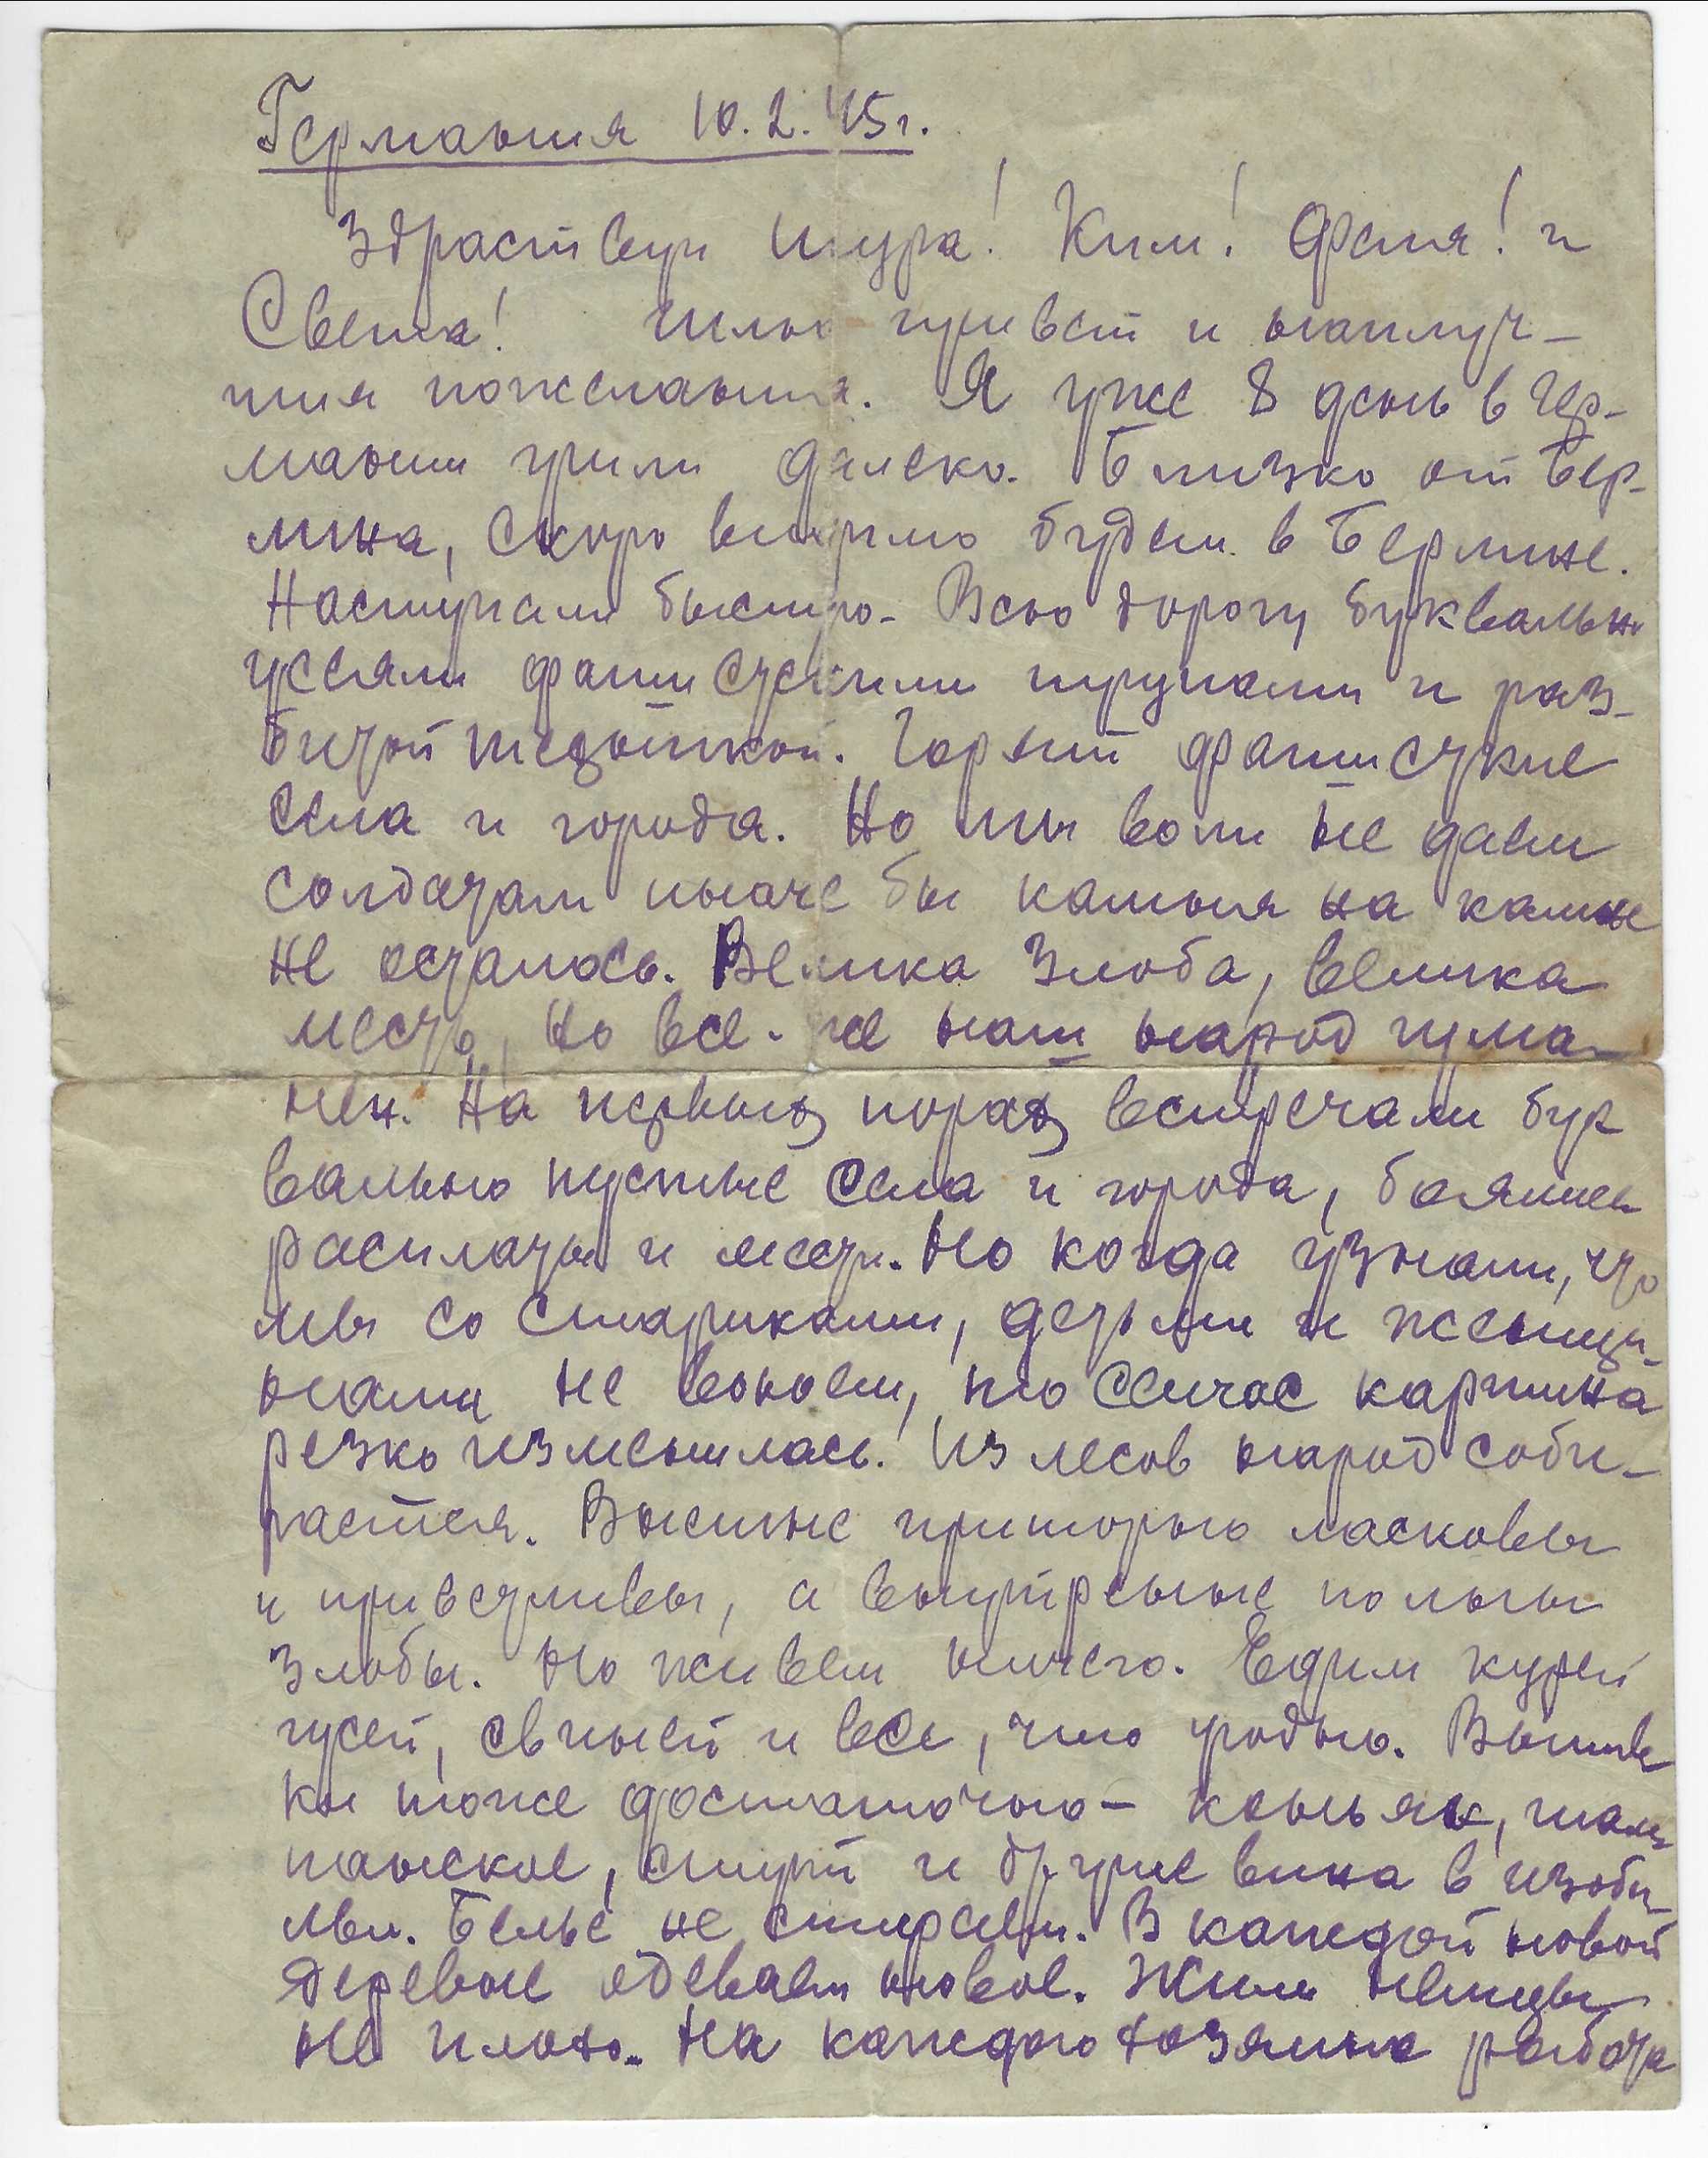 Германия 10.2.45г.
Здраствуй Шура! Ким! Фаня! и
Света! Шлю привет и наилуч-
шия пожелания. Я уже 8 день в Гер-
мании ушли далеко. Близко от Бер-
лина, скоро видимо будем в Берлине.
Наступали быстро. Всю дорогу буквально
усеяли фашискими трупами и раз-
битой техникой. Горят фашиские
села и города. Но мы воли не даем
солдатам иначе бы камня на камне
не осталось. Велика злоба, велика
месть, но все-же наш народ гума-
нен. На первых порах встречали бук
вально пустые села и города, боялись
расплаты и мести. Но когда узнали, что
мы со стариками, детьми и женщи-
нами не воюем, то сейчас картина
резко изменилась. Из лесов народ соби-
рается. Внешне приторно ласковы
и приветливы, а внутренне полны
злобы. Но живем ничего. Едим курей
гусей, свиней и все, что угодно. Выпив
ки тоже достаточно - коньяк, шам
панское, спирт и другие вина в изоби-
льи. Белье не стираем. В каждой новой
деревне одеваем новое. Жили немцы
не плохо. На каждого хозяина работа